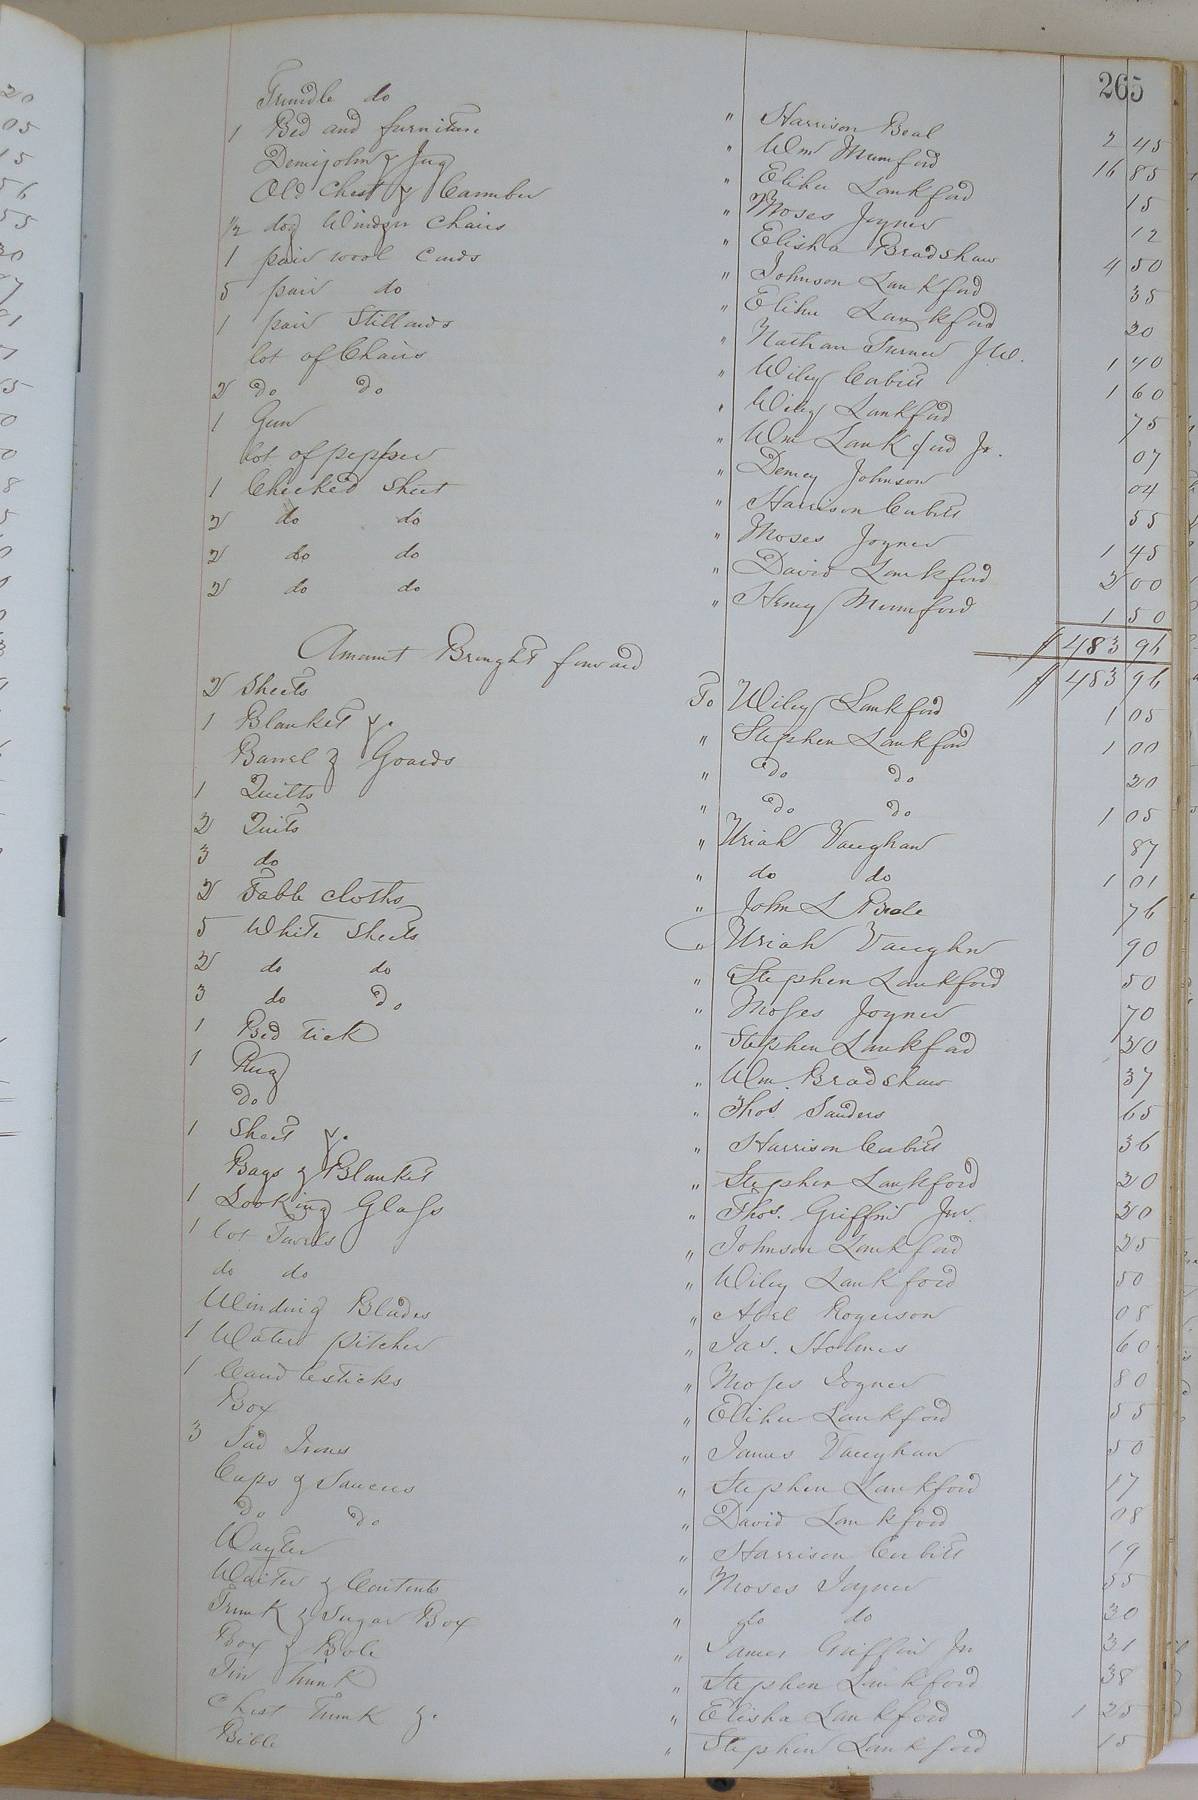 265
Trundle do " Harrison Beal 2 45
1 Bed and furniture " Wm Mumford 16 85
Demijohn & Jug " Elihu Lankford 15
Old Chest & Camber " Moses Joyner 12
1/2 doz Windsor Chairs " Elisha Bradshaw 4 50
1 pair wool Cards " Johnson Lankford 35
5 pair do " Elihu Lankford 20
1 pair Stillards " Nathan Turner 1 40
lot of Chairs " Wiley Corbitt 1 60
2 do do " Wiley Lankford 75
1 Gun " Wm Lankford Jr. 07
lot of pepper " Demcy Johnson 04
1 Checked Sheet " Harrison Corbitt 55
2 do do " Moses Joyner 1 45
2 do do " David Lankford 2 00
2 do do " Henry Mumford 1 50
$ 483 96
Amount Brought forward $ 483 96
2 Sheets To Wiley Lankford 1 05
1 Blanket &. " Stephen Lankford 1 00
Barrel & Goards " do do 20
1 Quilts " do do 1 05
2 Quits " Uriah Vaughan 87
3 do " do do 1 01
2 Table cloths " John L Beale 76
5 White Sheets " Uriah Vaughn 90
2 do do " Stephen Lankford 50
3 do do " Moses Joyner 70
1 Bed tick " Stephen Lankford 20
1 Rug " Wm. Bradshaw 37
do " Thos. Sanders 65
1 Sheet &. " Harrison Corbitt 36
Bags & Blanket " Stephen Lankford 20
1 Looking Glass " Thos. Griffin Jnr. 20
1 lot Towels " Johnson Lankford 25
do do " Wiley Lankford 50
Winding Blades " Abel Rogerson 08
1 Water pitcher " Jas. Holmes 60
1 Candlesticks " Moses Joyner 80
Box " Elihu Lankford 55
3 Sad Irons " James Vaughan 50
Cups & Saucers " Stephen Lankford 17
do do " David Lankford 08
Wayter " Harrison Corbitt 19
Waiter & Contents " Moses Joyner 55
Trunk & Sugar Box " do do 30
Box & Bole " James Griffin Jr 31
Tin Trunk " Stephen Lankford 38
Chest Trunk &. " Elisha Lankford 1 25
Bible " Stephen Lankford 15